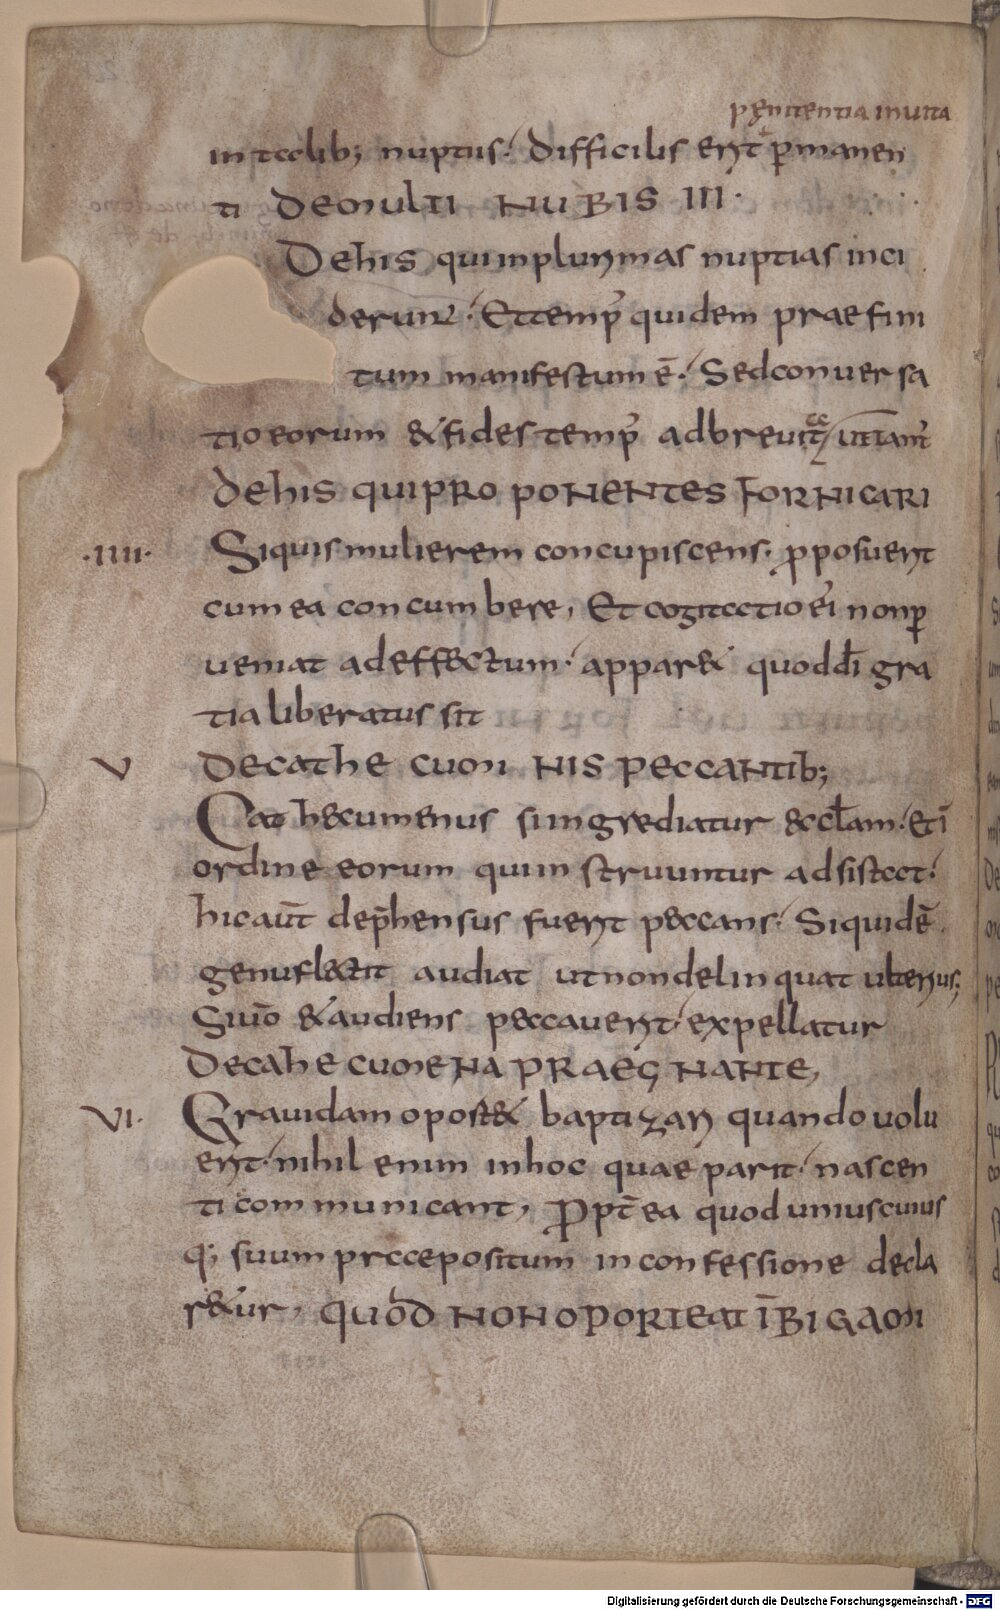 pęnitentia in uita
in talib; nuptus. difficilis erit ꝑmanen
ti DE MULTI NUBIS III.
De his qui in plurimas nuptias inci
derunt. Et temp᷒ quidem praefini
tum manifestum ē. Sed conuersa
tio eorum & fides temp᷒ adbreuiat
DE HIS QUI PROPONENTES FORNICARI
.IIII. Si quis mulierem concupiscens. ꝓposuerit
cum ea concumbere, Et cogitatio ei non ꝑ
ueniat ad effectum. appar& quod dī gra
tia liberatus sit
V DE CATHECUMINIS PECCANTIB;
Cath&cumenus si ingrediatur &cclam. Et ī
ordine eorum qui instruuntur adsistat.
hic aūt dep̄hensus fuerit peccans. Si quidē
genuflectit audiat ut non delinquat ulterius;
Si uō & audiens peccauerit expellatur
DE CAHECUMENA PRAEGNANTE,
VI. Grauidam oport& baptizari quando uolu
erit. nihil enim in hoc quae parit. nascen
ti communicant, Propt̄ea quod uniuscuius
q; suum praepositum in confessione decla
r&ur, QUOD NON OPORTEAT Ī BIGAMI
Digitalisierung gefördert durch die Deutsche Forschungsgemeinschaft - DFG